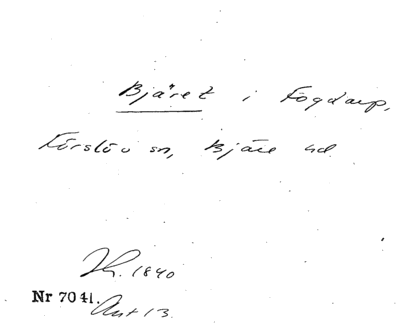 Bjäret i Fogdarp,
Förslöv sn, Bjäre hd
Jh. 1840
Nr 7041. Ant 13.